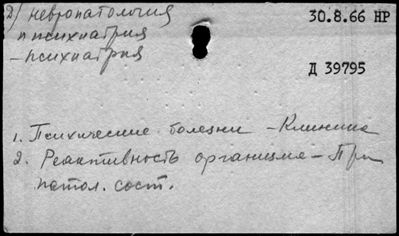 2) невропатология
и психиатрия
– психиатрия
30.8.66 НР
Д 39795
1. Психические болезни – Клиника
2. Реактивность организма – При
патол. сост.